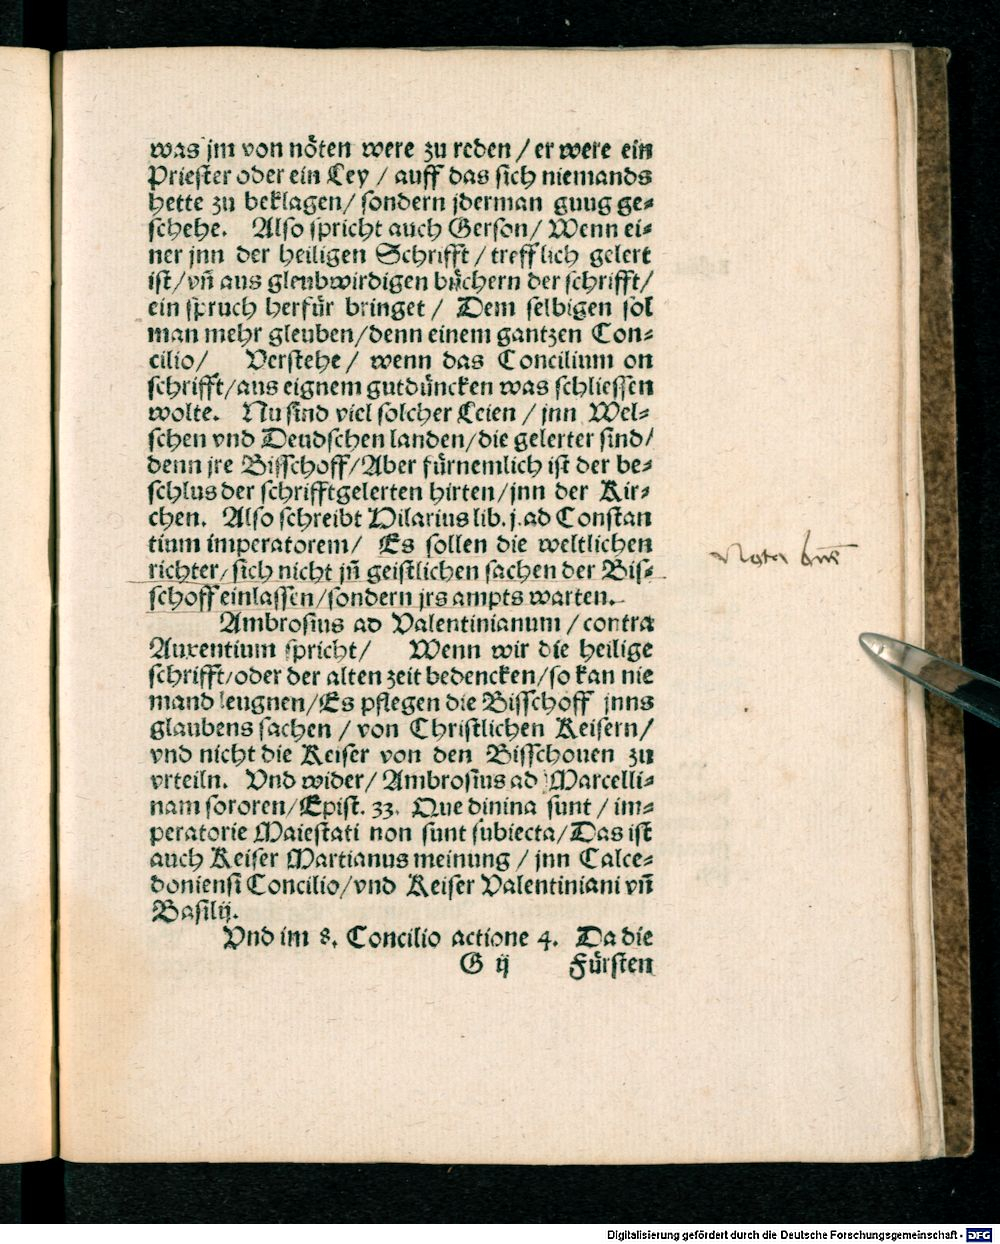 was jm von nöten were zu reden / er were ein
Priester oder ein Ley / auff das sich niemands
hette zu beklagen / sondern jderman guug ge⸗
schehe. Also spricht auch Gerson / Wenn ei⸗
ner jnn der heiligen Schrifft / trefflich gelert
ist / vñ aus gleubwirdigen büchern der schrifft /
ein spruch herfür bringet / Dem selbigen sol
man mehr gleuben / denn einem gantzen Con⸗
cilio / Verstehe / wenn das Concilium on
schrifft / aus eignem gutdüncken was schliessen
wolte. Nu sind viel solcher Leien / jnn Wel⸗
schen vnd Deudschen landen / die gelerter sind /
denn jre Bisschoff / Aber fürnemlich ist der be⸗
schlus der schrifftgelerten hirten / jnn der Kir⸗
chen. Also schreibt Hilarius lib. j. ad Constan
tium imperatorem / Es sollen die weltlichen
richter / sich nicht jñ geistlichen sachen der Bis⸗
schoff einlassen / sondern jrs ampts warten.
Nota bene
Ambrosius ad Valentinianum / contra
Auxentium spricht / Wenn wir die heilige
schrifft / oder der alten zeit bedencken / so kan nie
mand leugnen / Es pflegen die Bisschoff jnns
glaubens sachen / von Christlichen Keisern /
vnd nicht die Keiser von den Bisschouen zu
vrteiln. Vnd wider / Ambrosius ad Marcelli⸗
nam sororen / Epist. 33. Que dinina sunt / im⸗
peratorie Maiestati non sunt subiecta / Das ist
auch Keiser Martianus meinung / jnn Calce⸗
doniensi Concilio / vnd Keiser Valentiniani vñ
Basilij.
Vnd im 8. Concilio actione 4. Da die
G ij Fürsten
Digitalisierung gefördert durch die Deutsche Forschungsgemeinschaft - DFG